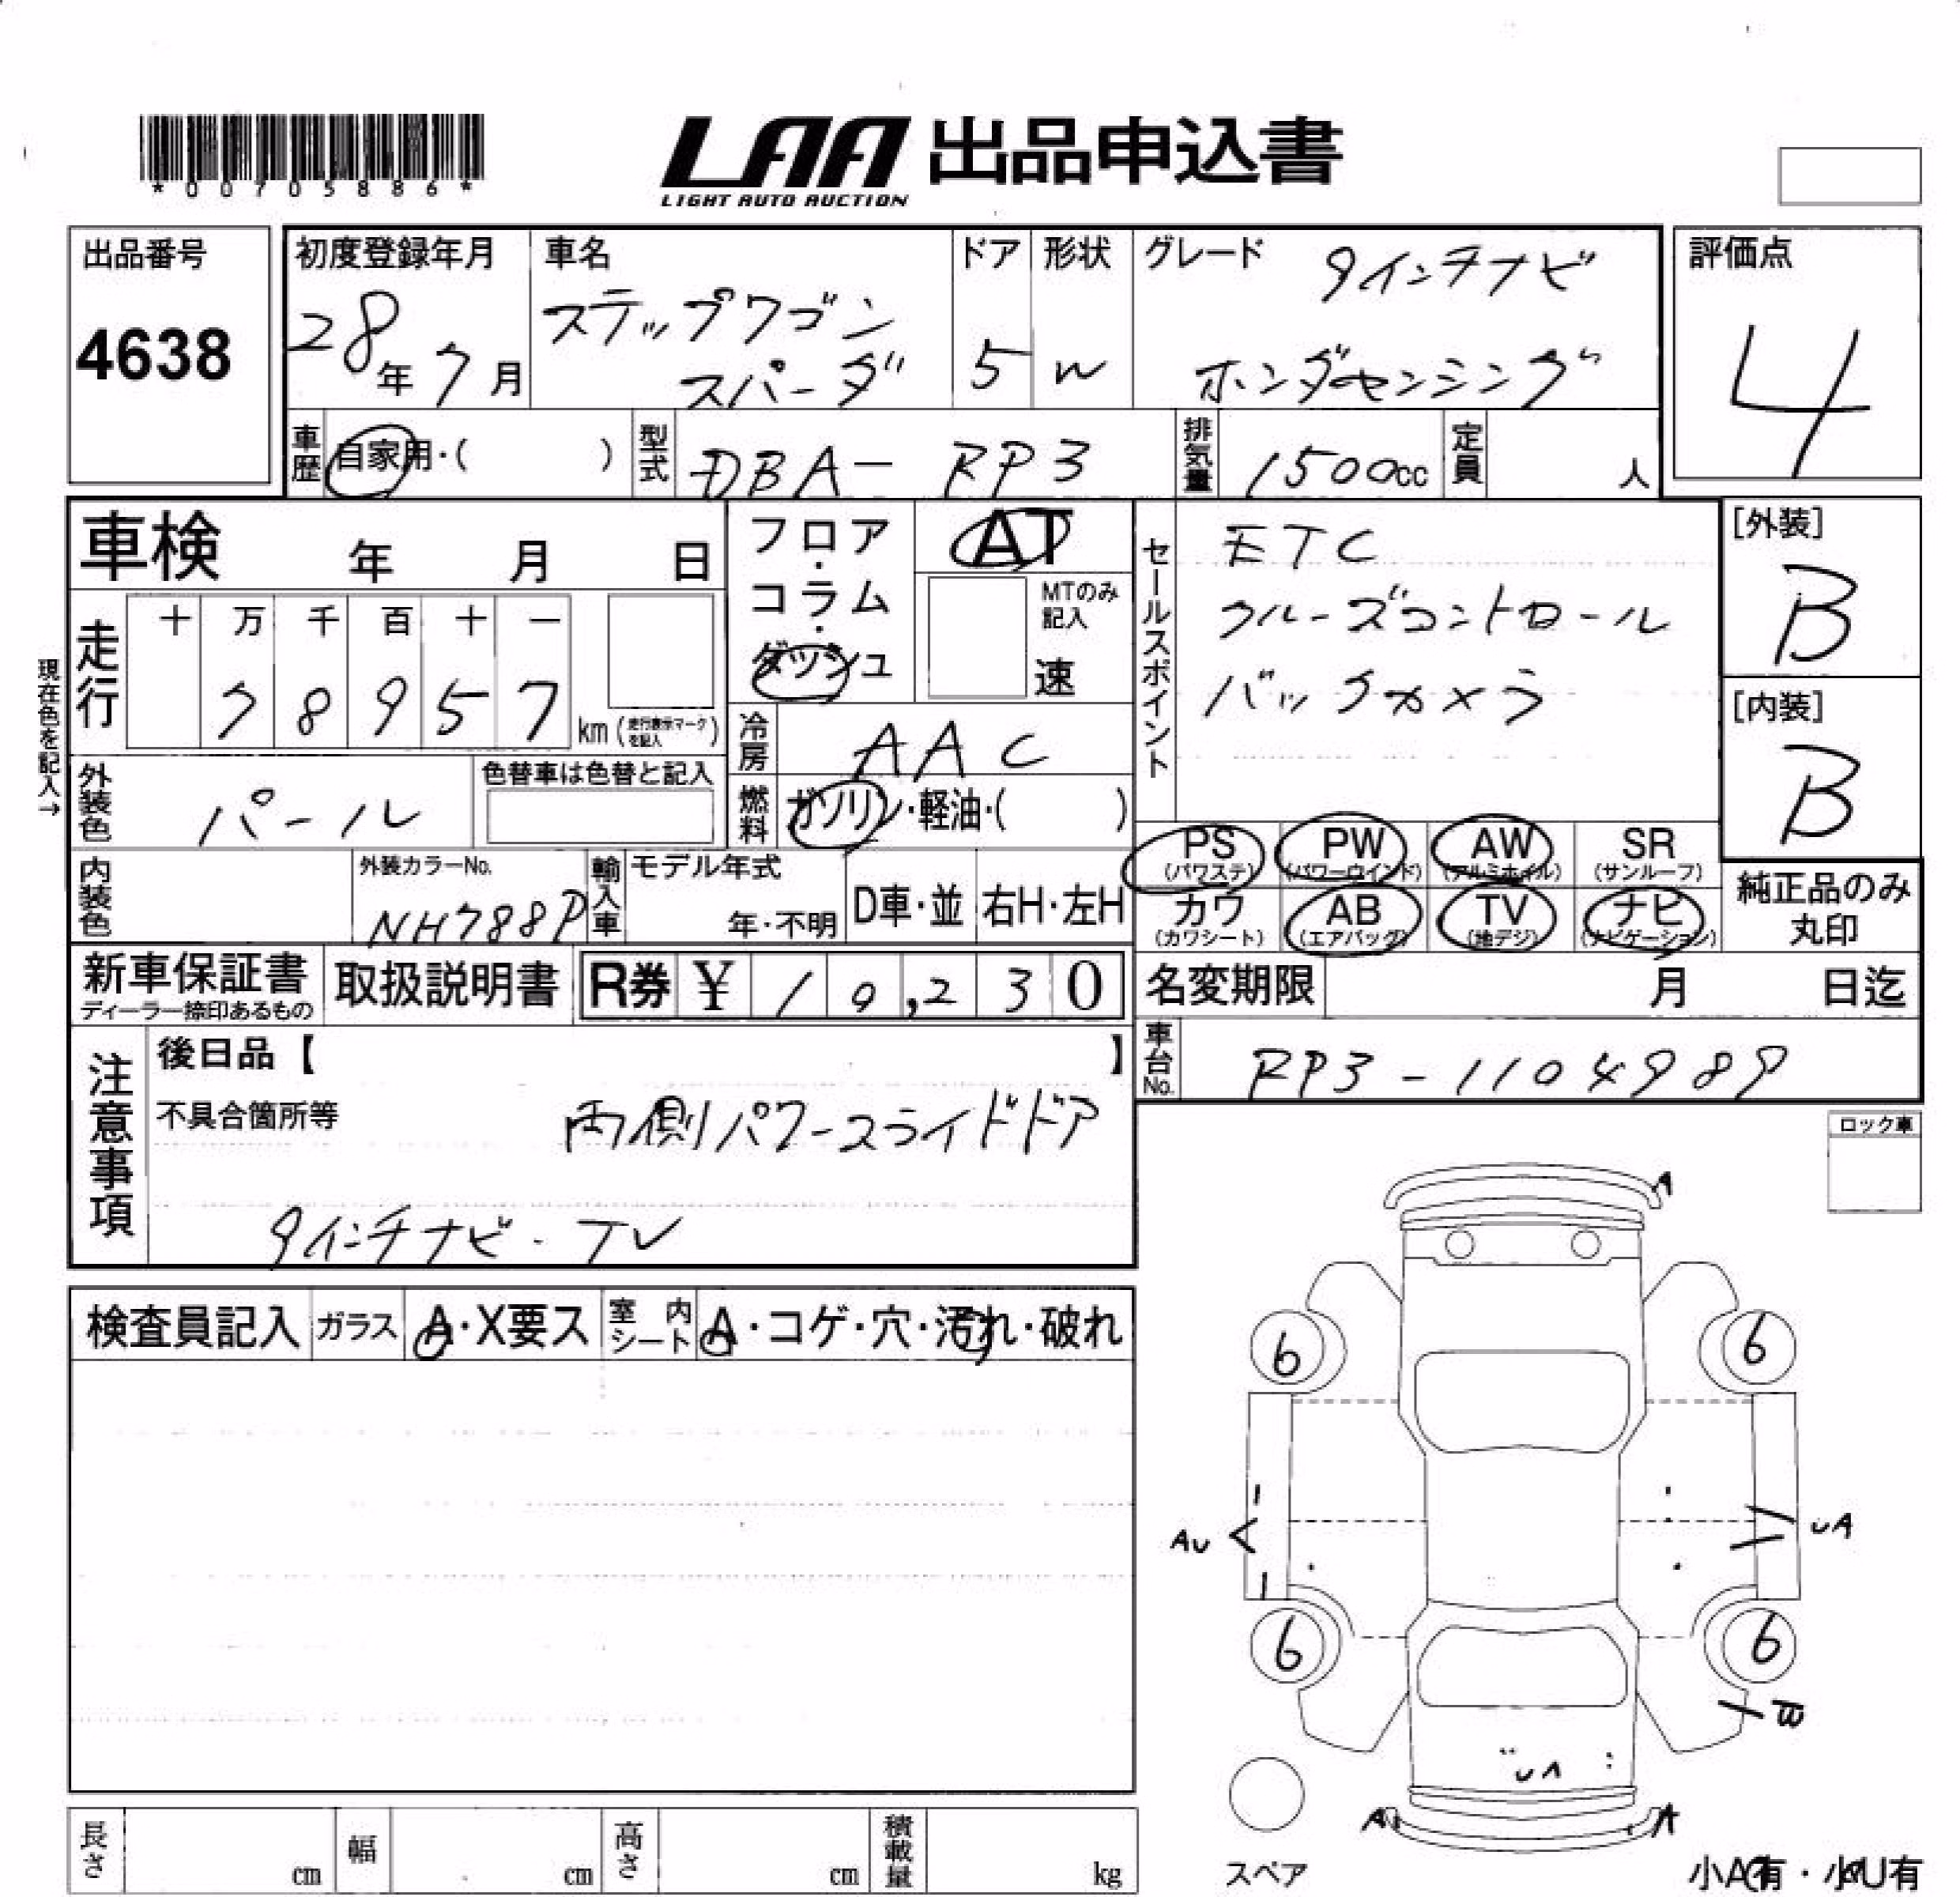 *00705886*
LAA 出品申込書
LIGHT AUTO AUCTION
出品番号
4638
初度登録年月
28年 7月
車名
ステップワゴン
スパーダ
ドア
5
形状
W
グレード
9インチナビ
ホンダセンシング
評価点
4
車歴 自家用・( )
型式 DBA-RP3
排気量 1500cc
定員 人
車検 年 月 日
走行
十 万 千 百 十 一
7 8 9 5 7
km (走行表示マークを記入)
現在色を記入→
外装色 パール
色替車は色替と記入
内装色
外装カラーNo.
NH788P
フロア・コラム・ダッシュ
AT
MTのみ記入
速
冷房 AAC
燃料 ガソリン・軽油・( )
輸入車 モデル年式
年・不明
D車・並 右H・左H
セールスポイント
ETC
クルーズコントロール
バックカメラ
[外装]
B
[内装]
B
PS (パワステ) PW (パワーウインド) AW (アルミホイル) SR (サンルーフ)
カワ (カワシート) AB (エアバッグ) TV (地デジ) ナビ (ナビゲーション)
純正品のみ
丸印
新車保証書
ディーラー捺印あるもの
取扱説明書
R券 ¥ 10,230
名変期限 月 日迄
車台No. RP3-1104989
注意事項
後日品【 】
不具合箇所等
両側パワースライドドア
9インチナビ・TV
ロック車
検査員記入 ガラス A・X要ス 室内シート A・コゲ・穴・汚れ・破れ
A
6 6
AU UA
6 6
B
UA
A A
スペア
小A有・小U有
長さ cm 幅 cm 高さ cm 積載量 kg